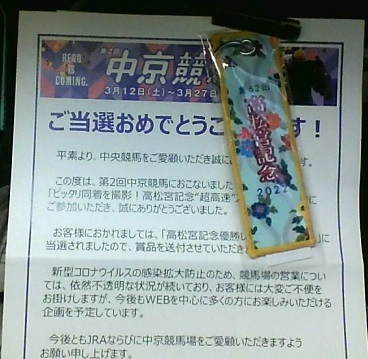 HERO
IS
COMING.
第2回
中京競
3月12日(土)～3月27日
ご当選おめでとうご す!
平素より、中央競馬をご愛顧いただき誠に す。
この度は、第2回中京競馬におこないました
「ピッタリ同着を撮影!高松宮記念“超高速”
ご参加いただき、誠にありがとうございました。
お客様におかれましては、「高松宮記念優勝レ
当選されましたので、賞品を送付させていただき
新型コロナウイルスの感染拡大防止のため、競馬場の営業につい
ては、依然不透明な状況が続いており、お客様には大変ご不便を
お掛けしますが、今後もWEBを中心に多くの方にお楽しみいただける
企画を予定しています。
今後ともJRAならびに中京競馬場をご愛顧いただきますよう
お願い申し上げます。
52回
高松宮記念
2022